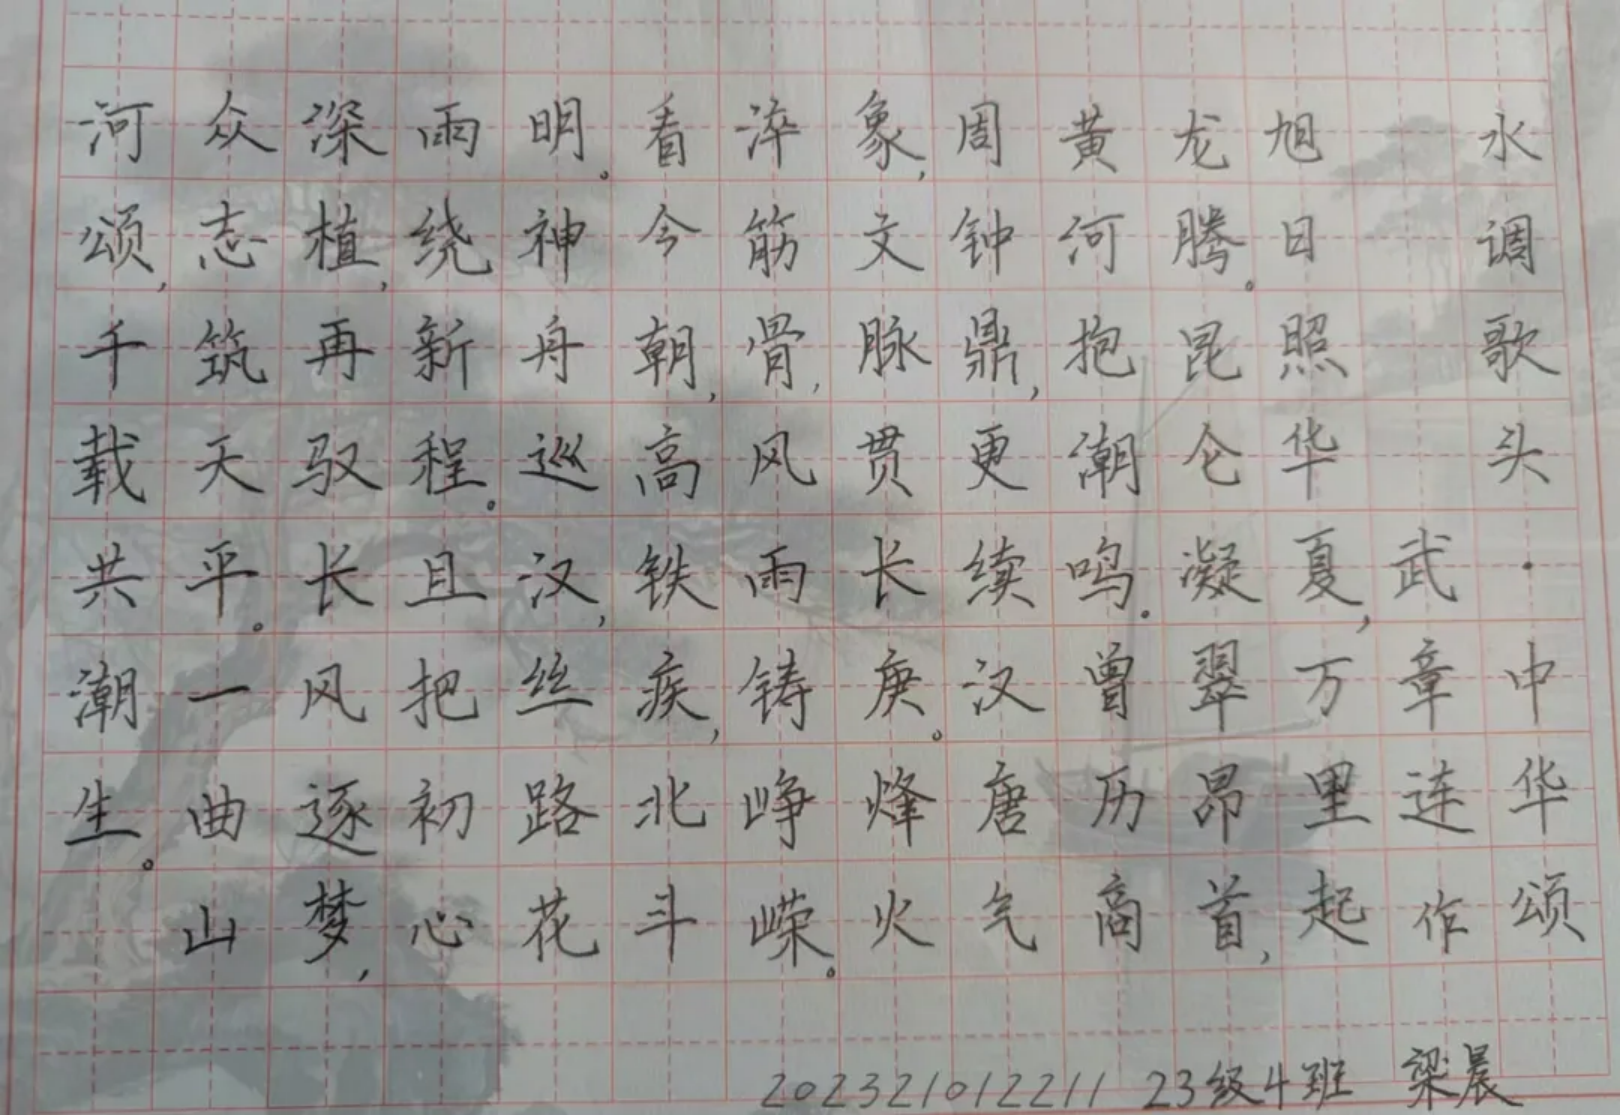 水调歌头·中华颂
武章连作
旭日照华夏，万里起
龙腾。昆仑凝翠昂首，
黄河抱潮鸣。曾历商
周钟鼎，更续汉唐气
象，文脉贯长庚。烽火
淬筋骨，风雨铸峥嵘。
看今朝，高铁疾，北斗
明。神舟巡汉，丝路花
雨绕新程。且把初心
深植，再驭长风逐梦，
众志筑天平。一曲山
河颂，千载共潮生。
202321012211 23级4班 梁晨